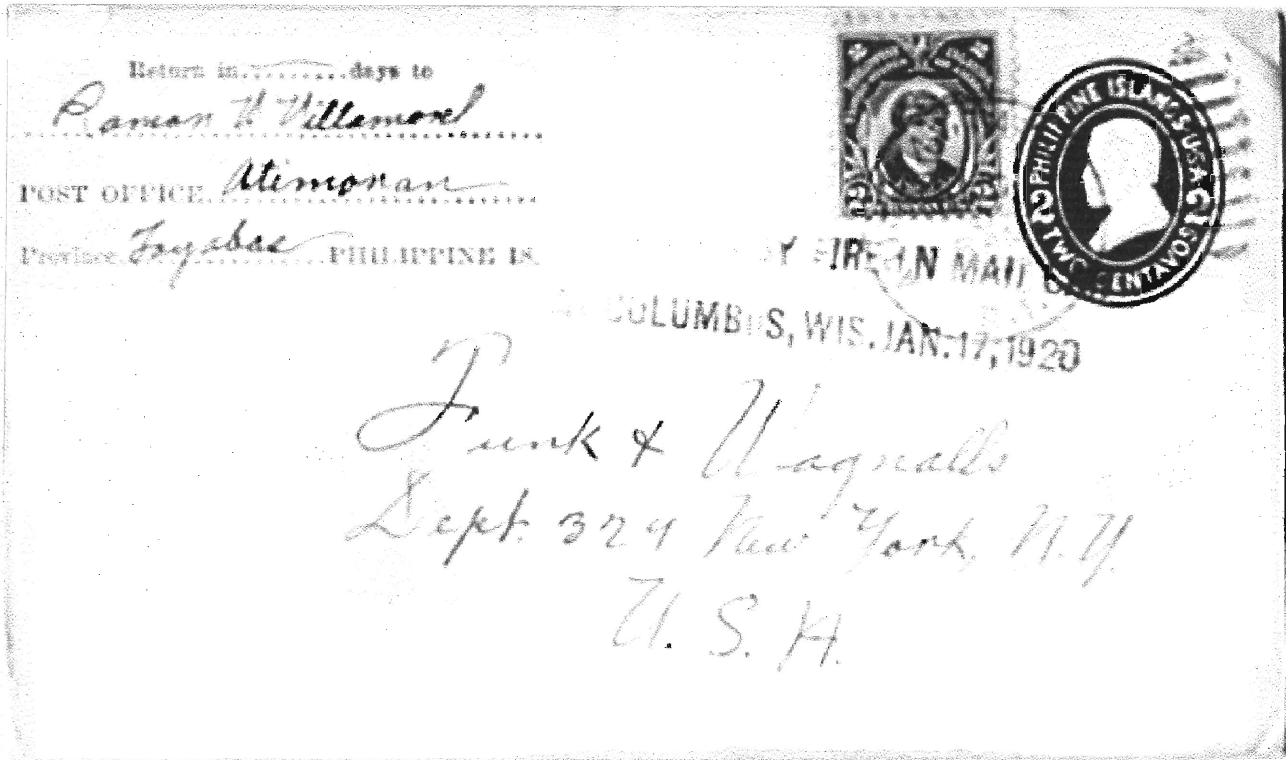 Return in ........ days to
Ramon V Villamorel
POST OFFICE Atimonan
Province Tayabas PHILIPPINE IS.
PHILIPPINE ISLANDS U.S.A.
2 2
TWO CENTAVOS
BY FIRE IN MAIL CAR
COLUMBUS, WIS. JAN. 17, 1920
Funk & Wagnalls
Dept. 324 New York, N.Y.
U. S. A.